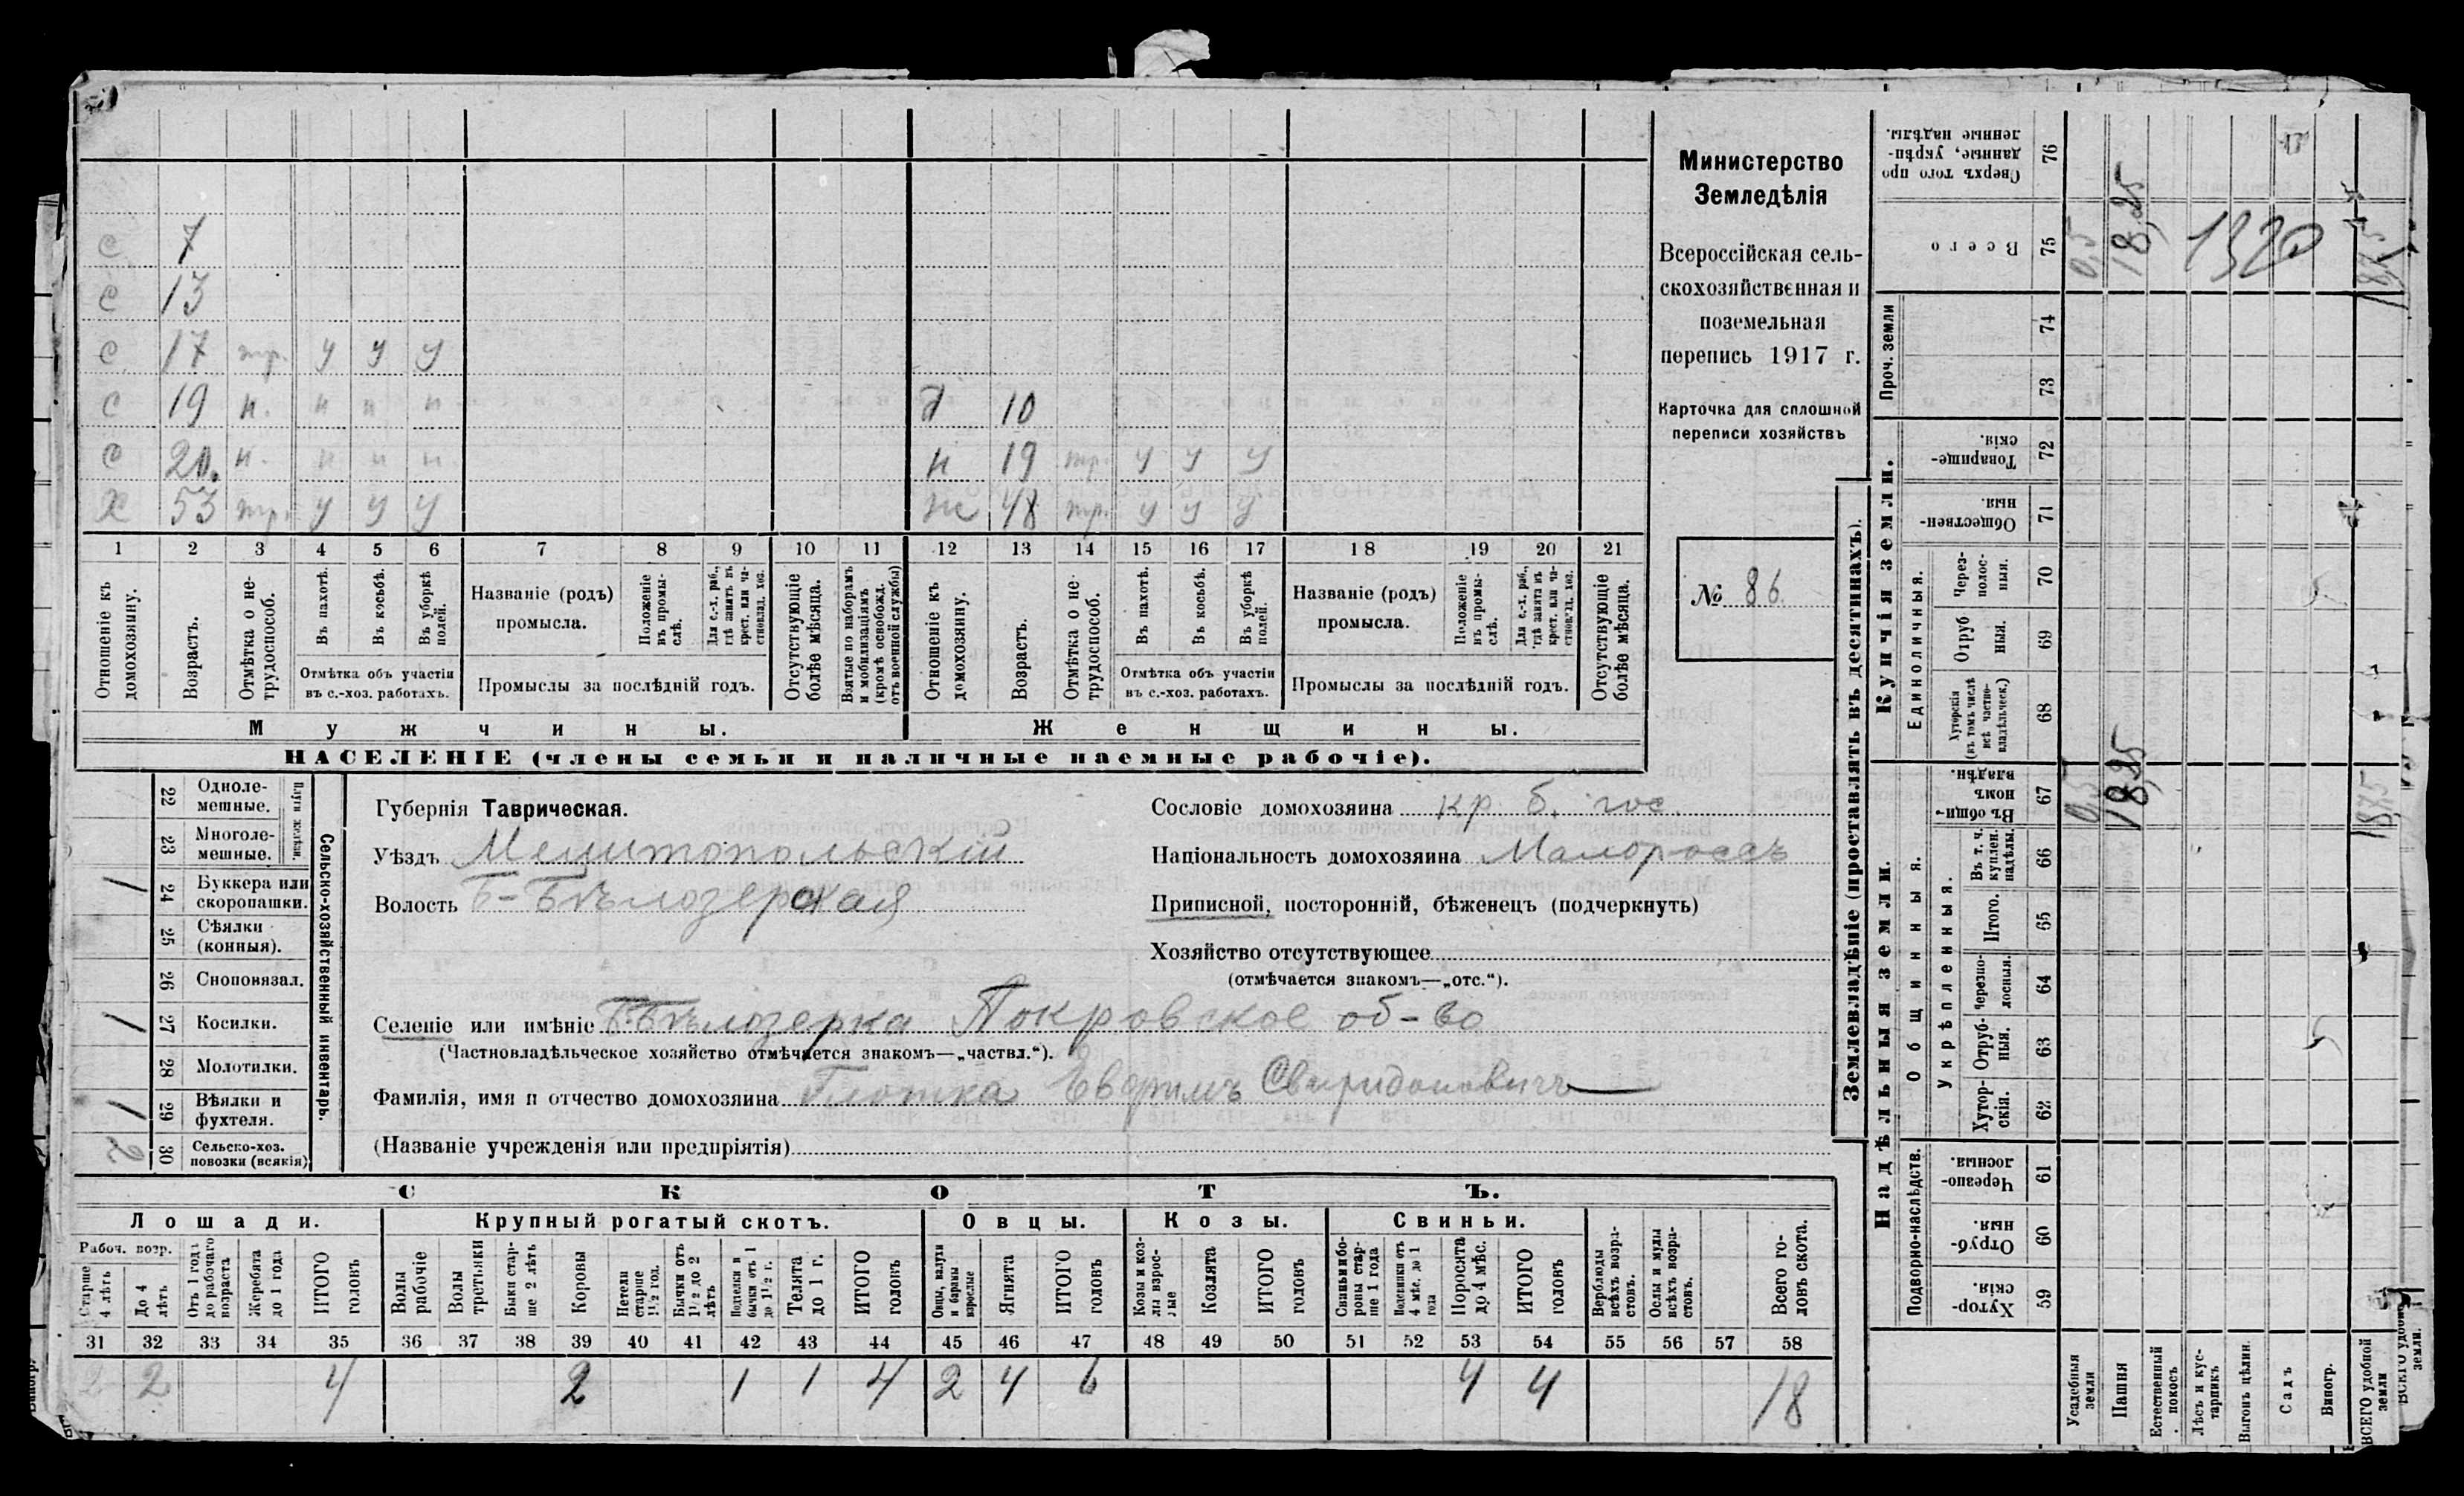 С 7
С 13
С 17 тр. у у у
С 19 н. н н н Д 10
С 20. н. н н н н 19 тр. у у у
Х 53 тр. у у у ж 48 тр. у у у
1 2 3 4 5 6 7 8 9 10 11 12 13 14 15 16 17 18 19 20 21
Отношеніе къ домохозяину.
Возрастъ.
Отмѣтка о не-трудоспособ.
Въ пахотѣ.
Въ косьбѣ.
Въ уборкѣ полей.
Отмѣтка объ участіи
въ с.-хоз. работахъ.
Названіе (родъ)
промысла.
Положеніе въ промы-слѣ.
Для с.-х. раб., гдѣ занятъ въ крест. или ча-стновлад. хоз.
Промыслы за послѣдній годъ.
Отсутствующіе болѣе мѣсяца.
Взятые по наборамъ и мобилизаціямъ (кромѣ освобожд. отъ военной службы)
Отношеніе къ домохозяину.
Возрастъ.
Отмѣтка о не-трудоспособ.
Въ пахотѣ.
Въ косьбѣ.
Въ уборкѣ полей.
Отмѣтка объ участіи
въ с.-хоз. работахъ.
Названіе (родъ)
промысла.
Положеніе въ промы-слѣ.
Для с.-х. раб., гдѣ занята въ крест. или ча-стновлад. хоз.
Промыслы за послѣдній годъ.
Отсутствующіе болѣе мѣсяца.
Мужчины. Женщины.
НАСЕЛЕНІЕ (члены семьи и наличные наемные рабочіе).
Министерство
Земледѣлія
Всероссійская сель-
скохозяйственная и
поземельная
перепись 1917 г.
Карточка для сплошной
переписи хозяйствъ
№ 86
22 Одноле-мешные.
23 Многоле-мешные.
24 Буккера или скоропашки. 1
25 Сѣялки (конныя).
26 Сноповязал.
27 Косилки. 1
28 Молотилки.
29 Вѣялки и фухтеля. 1
30 Сельско-хоз. повозки (всякія) 2
Сельско-хозяйственный инвентарь.
Губернія Таврическая.
Уѣздъ Мелитопольскій
Волость Б-Бѣлозерская
Сословіе домохозяина кр. б. гос.
Національность домохозяина Малороссъ
Приписной, посторонній, бѣженецъ (подчеркнуть)
Хозяйство отсутствующее
(отмѣчается знакомъ—„отс.“).
Селеніе или имѣніе Б-Бѣлозерка Покровское об-во
(Частновладѣльческое хозяйство отмѣчается знакомъ—„частвл.“).
Фамилія, имя и отчество домохозяина Свиридоновичъ
(Названіе учрежденія или предпріятія)
СКОТЪ.
Лошади. Крупный рогатый скотъ. Овцы. Козы. Свиньи.
Рабоч. возр.
Старше 4 лѣтъ
До 4 лѣтъ
Отъ 1 года до рабочаго возраста
Жеребята до 1 года
ИТОГО головъ
Волы рабочіе
Волы третьяки
Быки стар-ше 2 лѣтъ
Коровы
Нетели старше 1½ год.
Бычки отъ 1½ до 2 лѣтъ
Подтелки и бычки отъ 1 до 1½ г.
Телята до 1 г.
ИТОГО головъ
Овцы, валухи и бараны взрослые
Ягнята
ИТОГО головъ
Козы и коз-лы взрос-лые
Козлята
ИТОГО головъ
Свиньи бо-ровы стар-ше 1 года
Подсвинки отъ 4 мѣс. до 1 года
Поросята до 4 мѣс.
ИТОГО головъ
Верблюды всѣхъ возра-стовъ.
Ослы и мулы всѣхъ возра-стовъ.
Всего го-ловъ скота.
31 32 33 34 35 36 37 38 39 40 41 42 43 44 45 46 47 48 49 50 51 52 53 54 55 56 57 58
2 2 4 2 1 1 4 2 4 6 4 4 18
Землевладѣніе (проставлять въ десятинахъ).
Сверхъ того про-данные, укрѣп-ленные надѣлы. 76
Всего 75 0,5 18,25 1320 18,75
Проч. земли 74
73
Купчія земли.
Товарище-скія. 72
Обществен-ныя. 71
Единоличныя.
Через-полос-ныя. 70
Отруб-ныя. 69
Хуторскія (въ томъ числѣ всѣ частно-владѣльческ.) 68
Надѣльныя земли.
Общинныя.
Въ общин-номъ владѣн. 67 0,5 18,25 18,75
Укрѣпленныя.
Въ т. ч. куплен. надѣлы. 66
Итого. 65
Черезпо-лосныя. 64
Отруб-ныя. 63
Хутор-скія. 62
Подворно-наслѣдств.
Черезпо-лосныя. 61
Отруб-ныя. 60
Хутор-скія. 59
Усадебныя земли
Пашня
Естественный покосъ
Лѣсъ и кус-тарникъ
Выгонъ цѣлин.
Садъ
Виногр.
ВСЕГО удобной земли